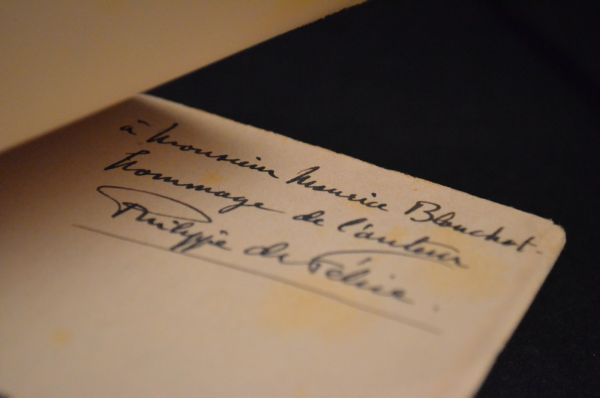 à Monsieur Maurice Blanchot.
hommage de l'auteur
Philippe de Félice.